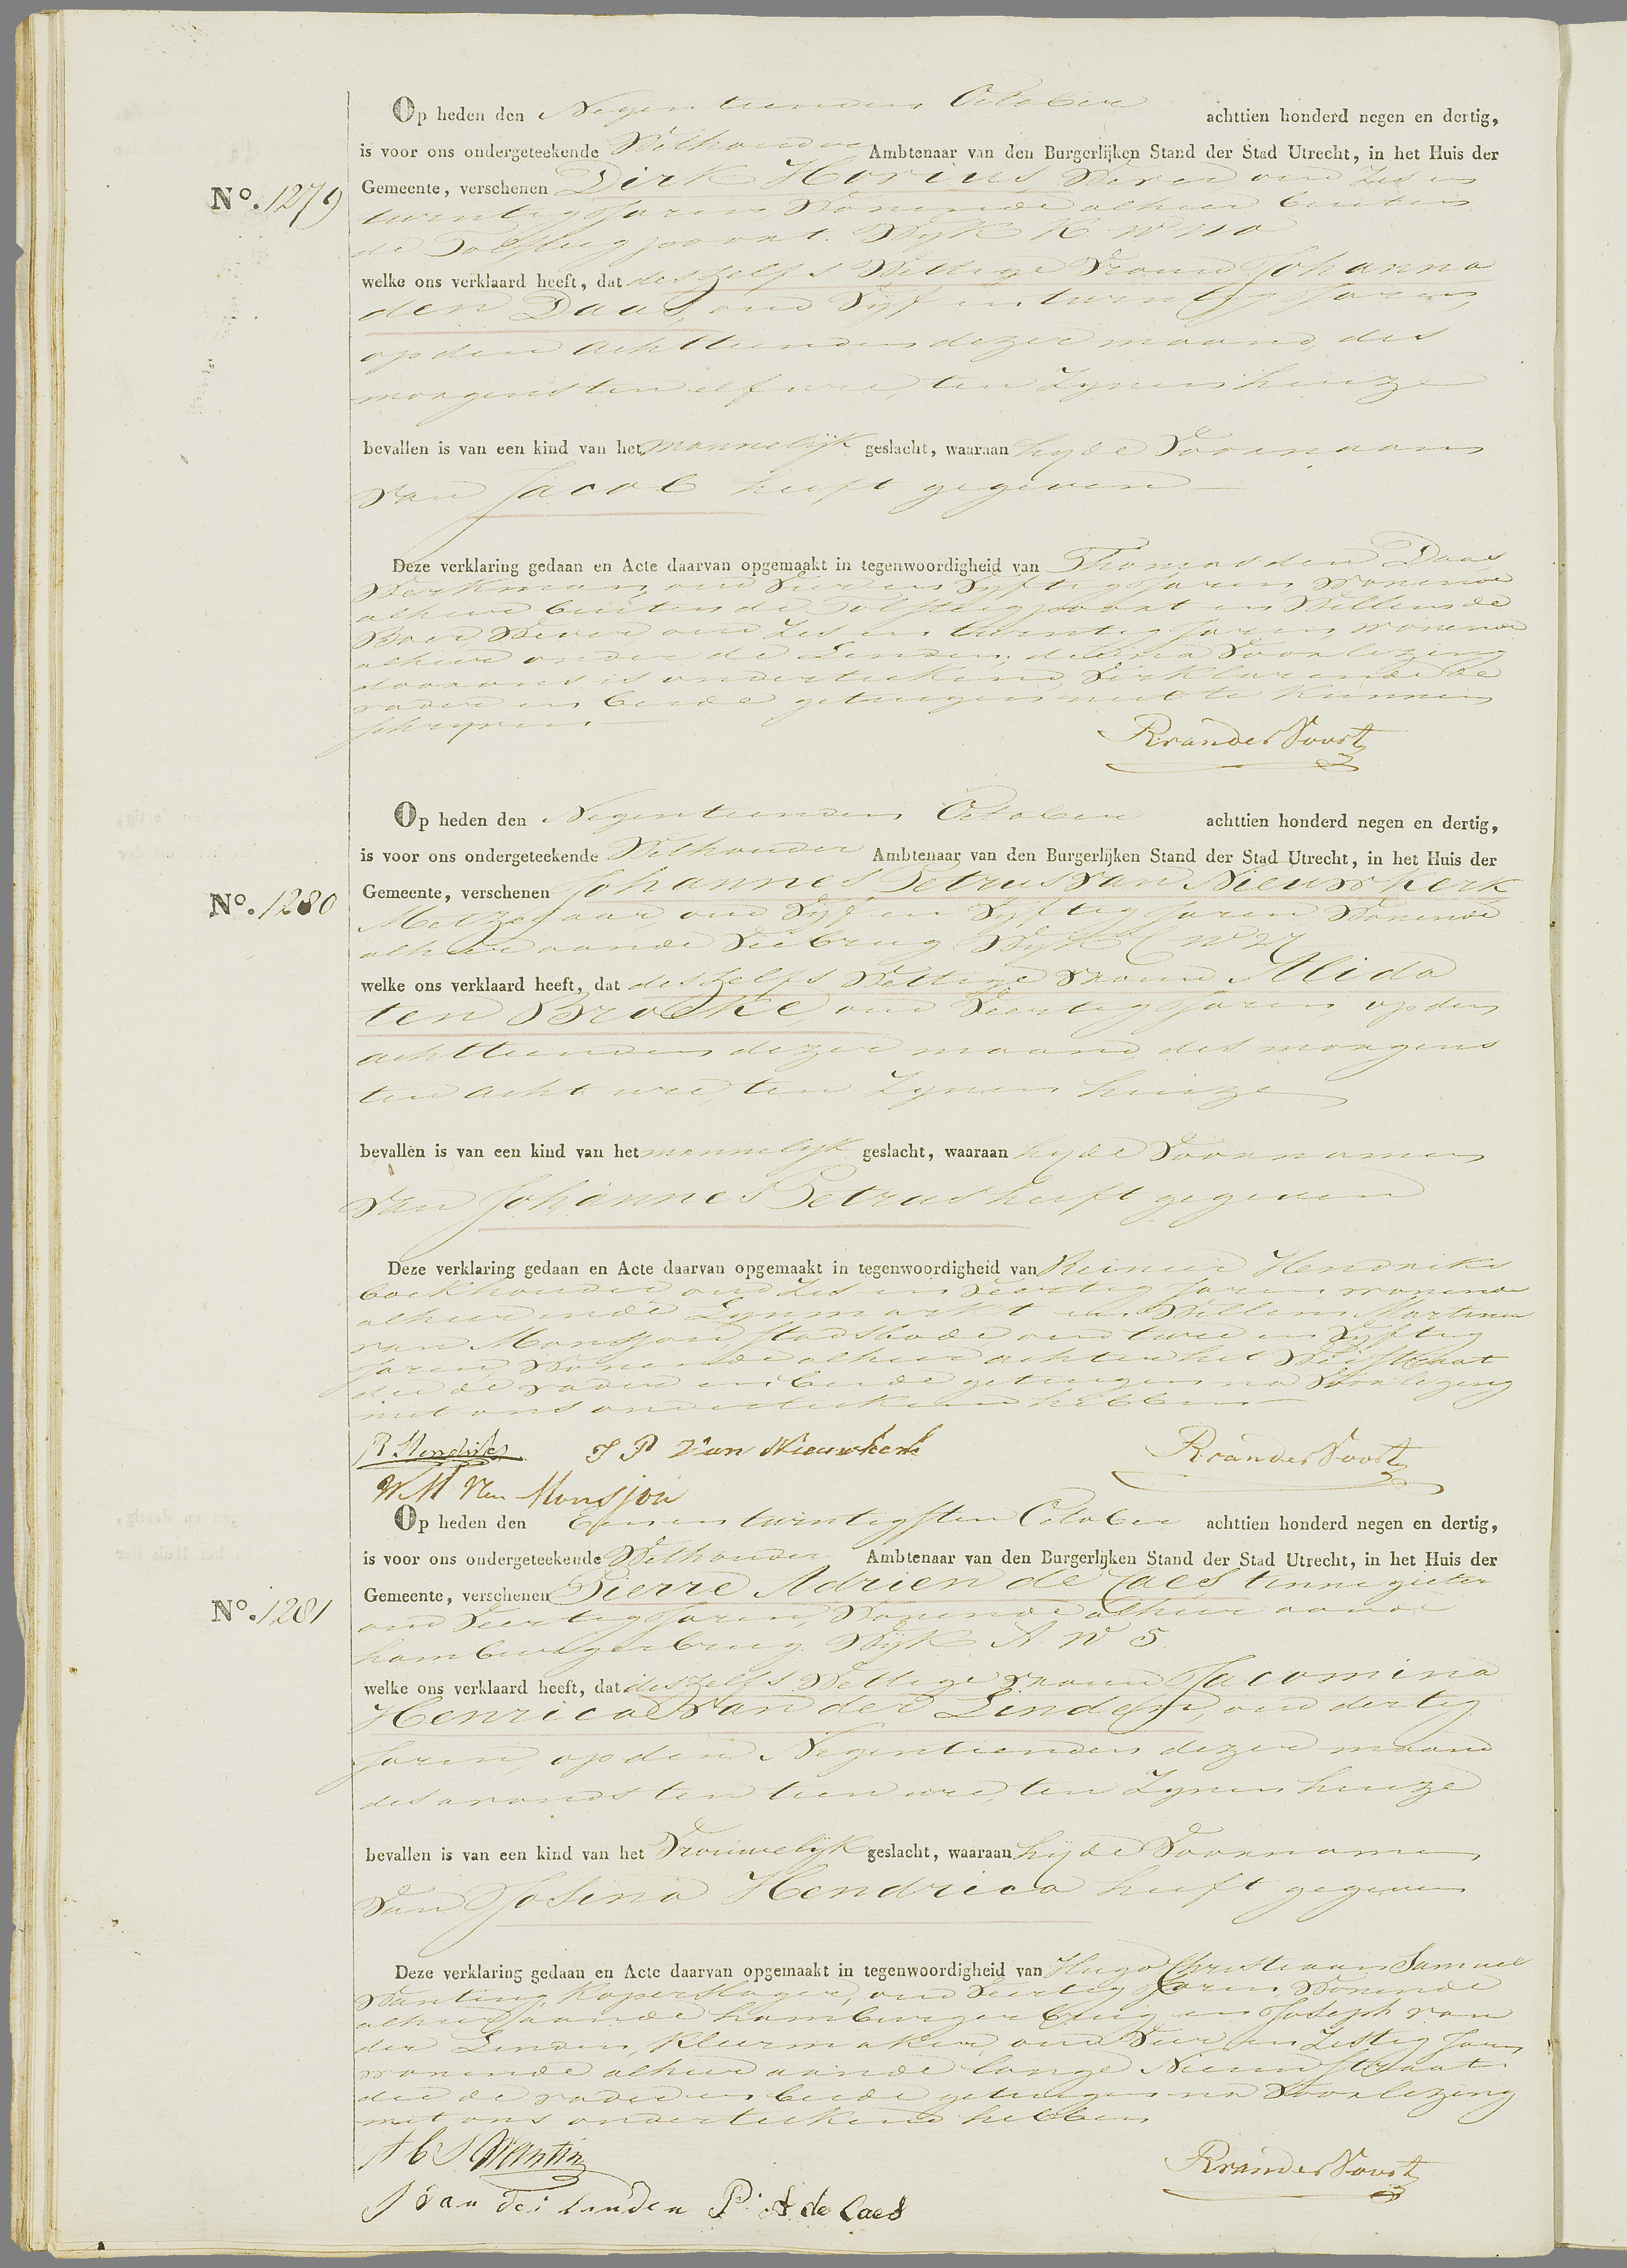 Op heden den Negentienden October achttien honderd negen en dertig,
is voor ons ondergeteekende Wethouder Ambtenaar van den Burgerlijken Stand der Stad Utrecht, in het Huis der
No. 1279
Gemeente, verschenen Dirk Horius, Wever oud Zes en
twintig Jaren, Wonende alhier buiten
de Tolsteegpoort. Wijk K No 110
welke ons verklaard heeft, dat deszelfs Wettige Vrouw Johanna
den Daas, oud Vijf en twintig Jaren,
op den achttienden dezer maand, des
morgens ten elf ure, ten Zynen huize
bevallen is van een kind van het mannelijk geslacht, waaraan hij de Voornaam
Van Jacob heeft gegeven
Deze verklaring gedaan en Acte daarvan opgemaakt in tegenwoordigheid van Thomas den Daas
Werkman, oud Vier en Vyftig Jaren, Wonende
alhier buiten de Tolsteegpoort en Willem de
Boer, Wever oud Zes en twintig Jaren, wonende
alhier onder de Linden, die na Voorlezing
door ons is onderteekend, Verklarende de
vader en beide getuigen niet te kunnen
schryven.
R van der Voort
Op heden den Negentienden October achttien honderd negen en dertig,
is voor ons ondergeteekende Wethouder Ambtenaar van den Burgerlijken Stand der Stad Utrecht, in het Huis der
No. 1280
Gemeente, verschenen Johannes Petrus Van Nieuwkerk
Metzelaar, oud Vijf en Vijftig Jaren Wonende
alhier aan de Viebrug Wijk C No 27
welke ons verklaard heeft, dat deszelfs Wettige Vrouw Alida
ten Broeke, oud Veertig Jaren, op den
achttienden dezer maand, des morgens
ten acht ure, ten Zynen huize
bevallen is van een kind van het mannelijk geslacht, waaraan hij de Voornamen
Van Johannes Petrus heeft gegeven
Deze verklaring gedaan en Acte daarvan opgemaakt in tegenwoordigheid van Reinier Hendriks
boekhouder oud Zes en Veertig Jaren, wonende
alhier in de Lynmarkt en Willem Martinus
van Monsjou, stadsbode, oud twee en Vyftig
Jaren, Wonende alhier achter het
die de vader en beide getuigen na Voorlezing
met ons onderteekend hebben
R Hendriks J P Van Nieuwkerk R van der Voort
W M Van Monsjou
Op heden den Een en twintigsten October achttien honderd negen en dertig,
is voor ons ondergeteekende Wethouder Ambtenaar van den Burgerlijken Stand der Stad Utrecht, in het Huis der
No. 1281
Gemeente, verschenen Pierre Adrien de Caes tinnegieter
oud Veertig Jaren, Wonende alhier aan de
hamburgerbrug Wijk A No 5.
welke ons verklaard heeft, dat deszelfs Wettige Vrouw Jacomina
Henrica Van der Linden, oud dertig
Jaren, op den Negentienden dezer maand
des avonds ten tien ure, ten Zynen huize
bevallen is van een kind van het Vrouwelijk geslacht, waaraan hij de Voornamen
Van Josina Hendrica heeft gegeven
Deze verklaring gedaan en Acte daarvan opgemaakt in tegenwoordigheid van Hugo Christiaan Samuel
Wanting, Koperslager, oud Veertig Jaren, Wonende
alhier aan de hamburgerbrug en Joseph van
der Linden, Kleermaker, oud Vier en Zestig Jaren
wonende alhier aan de lange Nieuwstraat
die de vader en beide getuigen na Voorlezing
met ons onderteekend hebben
H C S Wanting R van der Voort
J van der linden P. A de Caes